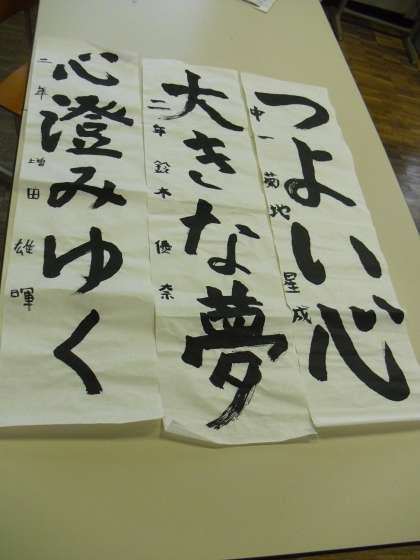 つよい心
中一 菊地 星成
大きな夢
二年 鈴木 優奈
心澄みゆく
三年 増田 雄暉